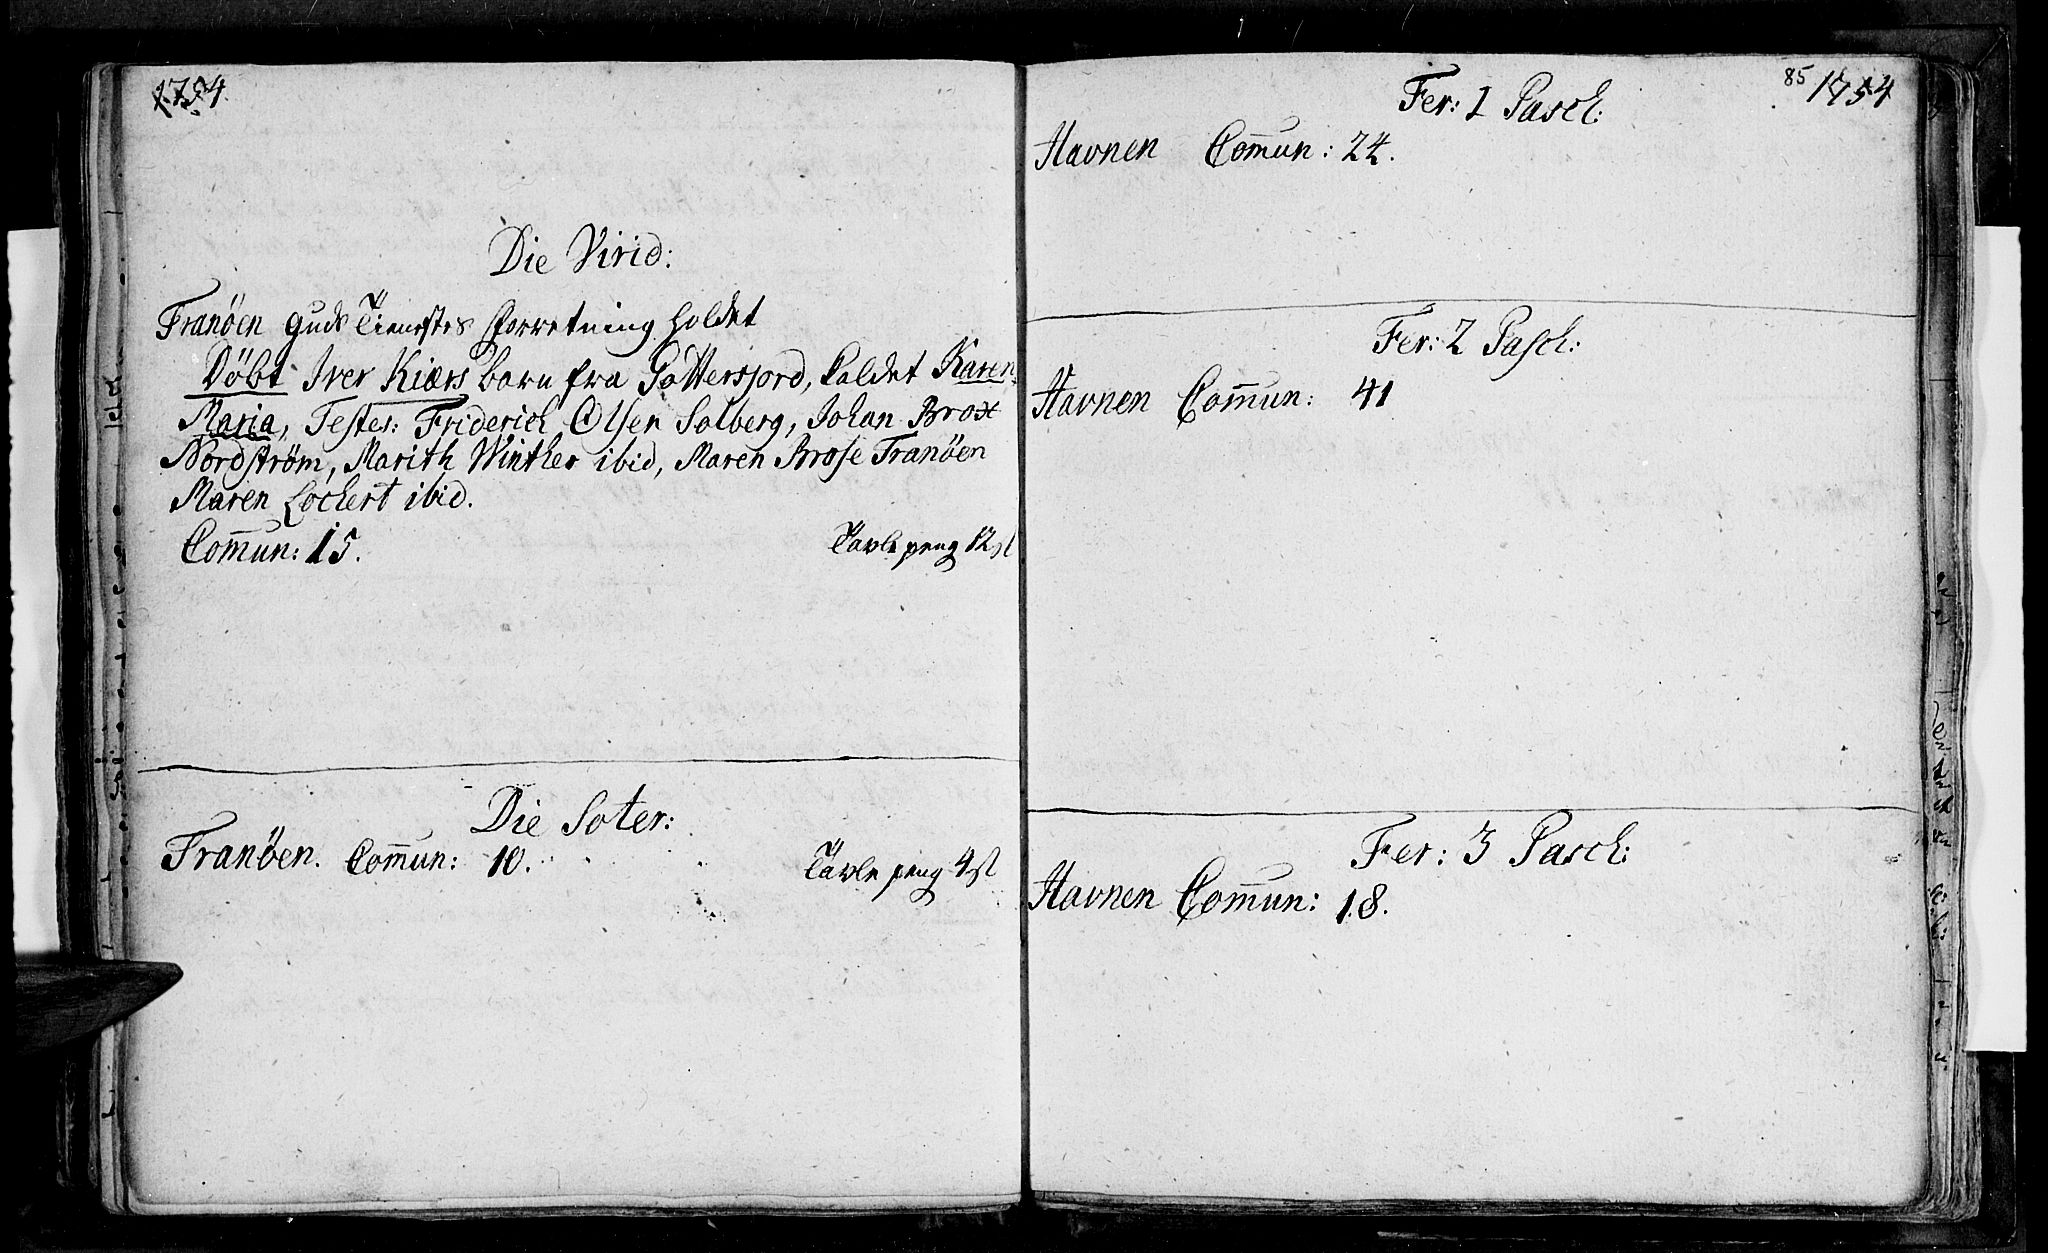 1754.
Die Virid:
Tranöen Guds Tienestes forretning holdet
Döbt Iver Kiærs barn fra Gottersjord, kaldet Karen
Maria, Testes: Friderich Olsen Solberg, Johan Brox
Nordström, Marith Winther ibid, Maren Brose Tranöen
Maren Lockert ibid.
Comun: 15. Tavle peng 12 sl
Die Soter:
Tranöen. Comun: 10. Tavle peng 4 sl
85 1754
Fer: 1 Pasch:
Havnen Comun: 24.
Fer: 2 Pasch:
Havnen Comun: 41
Fer: 3 Pasch:
Havnen Comun: 18.